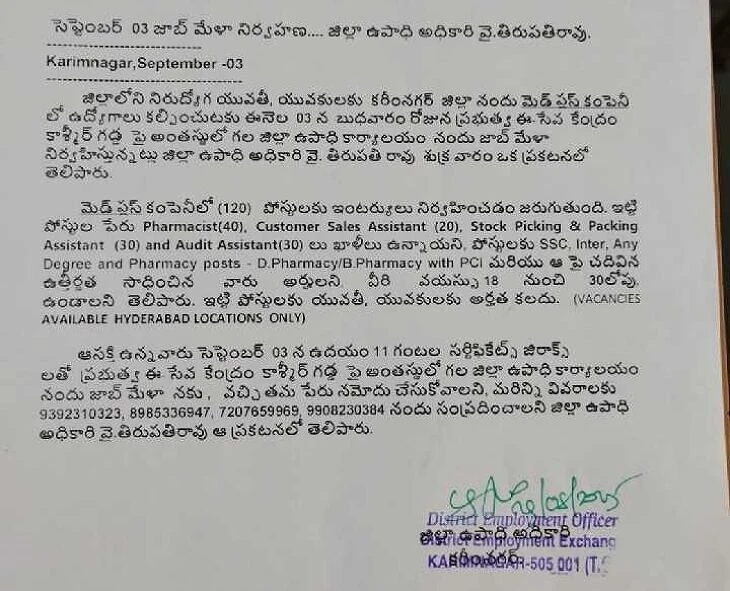 సెప్టెంబర్ 03 జాబ్ మేళా నిర్వహణ.... జిల్లా ఉపాధి అధికారి వై.తిరుపతిరావు.
-----------------------------
Karimnagar,September -03
-----------------------------------
జిల్లాలోని నిరుద్యోగ యువతీ, యువకులకు కరీంనగర్ జిల్లా నందు మెడ్ ప్లస్ కంపెనీ
లో ఉద్యోగాలు కల్పించుటకు ఈనెల 03 న బుధవారం రోజున ప్రభుత్వ ఈ-సేవ కేంద్రం
కాశ్మీర్ గడ్డ పై అంతస్తులో గల జిల్లా ఉపాధి కార్యాలయం నందు జాబ్ మేళా
నిర్వహిస్తున్నట్లు జిల్లా ఉపాధి అధికారి వై. తిరుపతి రావు శుక్ర వారం ఒక ప్రకటనలో
తెలిపారు.
మెడ్ ప్లస్ కంపెనీలో (120) పోస్టులకు ఇంటర్యులు నిర్వహించడం జరుగుతుంది. ఇట్టి
పోస్టుల పేరు Pharmacist(40), Customer Sales Assistant (20), Stock Picking & Packing
Assistant (30) and Audit Assistant(30) లు ఖాళీలు ఉన్నాయని, పోస్టులకు SSC, Inter, Any
Degree and Pharmacy posts - D.Pharmacy/B.Pharmacy with PCI మరియు ఆ పై చదివిన
ఉత్తీర్ణత సాధించిన వారు అర్హులని వీరి వయస్సు 18 నుంచి 30లోపు
ఉండాలని తెలిపారు. ఇట్టి పోస్టులకు యువతీ, యువకులకు అర్హత కలదు. (VACANCIES
AVAILABLE HYDERABAD LOCATIONS ONLY)
ఆసక్తి ఉన్నవారు సెప్టెంబర్ 03 న ఉదయం 11 గంటల సర్టిఫికేట్స్ జిరాక్స్
లతో ప్రభుత్వ ఈ-సేవ కేంద్రం కాశ్మీర్ గడ్డ పై అంతస్తులో గల జిల్లా ఉపాధి కార్యాలయం
నందు జాబ్ మేళా నకు, వచ్చి తమ పేరు నమోదు చేసుకోవాలని, మరిన్ని వివరాలకు
9392310323, 8985336947, 7207659969, 9908230384 నందు సంప్రదించాలని జిల్లా ఉపాధి
అధికారి వై.తిరుపతిరావు ఆ ప్రకటనలో తెలిపారు.
District Employment Officer
జిల్లా ఉపాధి అధికారి
District Employment Exchang
కరీంనగర్
KARIMNAGAR-505 001 (T.S